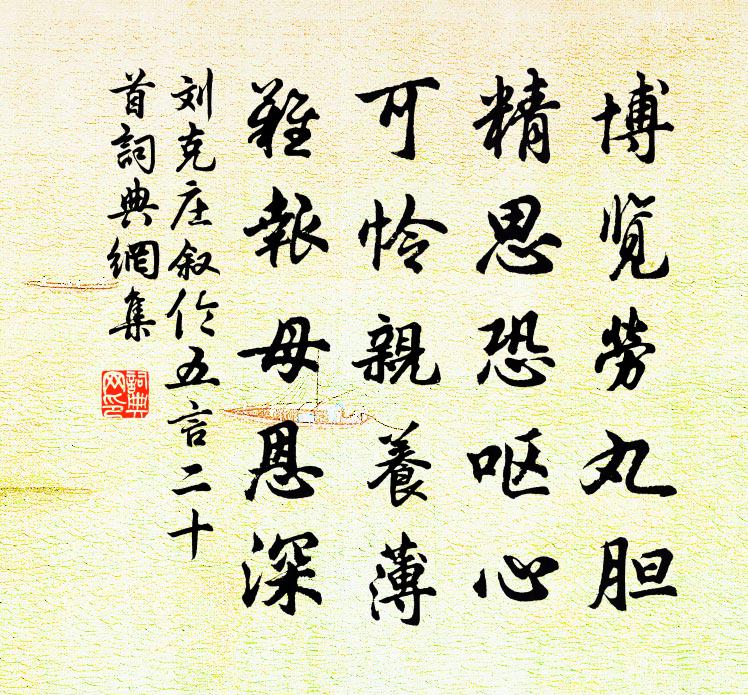 博览勞丸胆
精思恐呕心
可怜親養薄
難報母恩深
刘克庄叙伦五言二十
首詞典網集
詞典
网印